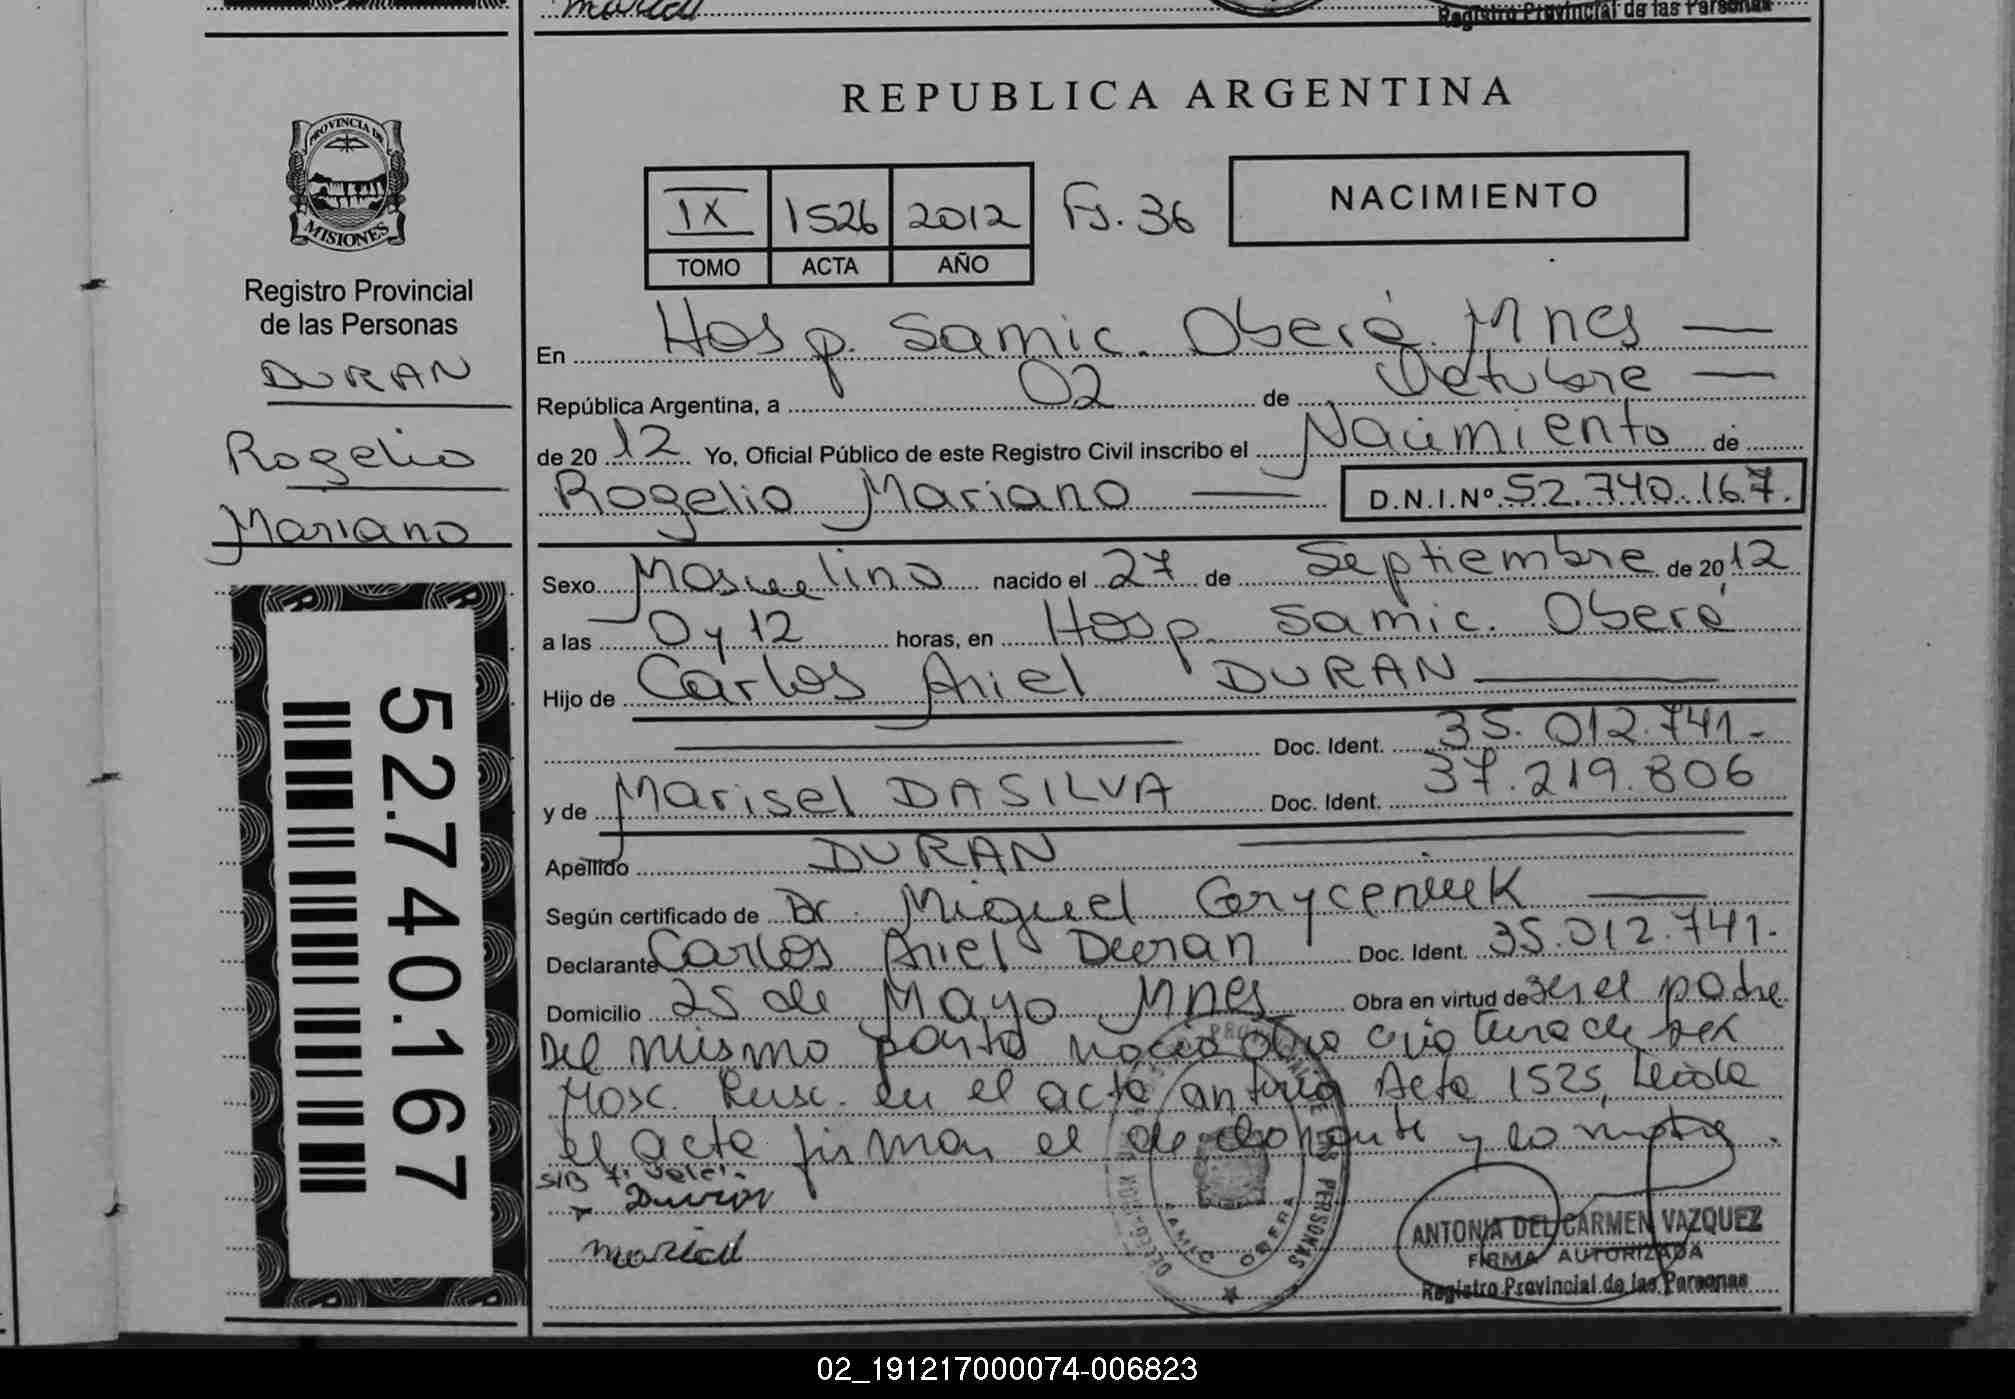 Registro Provincial de las Personas
REPUBLICA ARGENTINA
PROVINCIA DE
MISIONES
Registro Provincial
de las Personas
DURAN
Rogelio
Mariano
52.740.167
IX 1526 2012 Fs. 36
TOMO ACTA AÑO
NACIMIENTO
En Hosp. Samic. Oberá Mnes
República Argentina, a 02 de Octubre
de 2012 Yo, Oficial Público de este Registro Civil inscribo el Nacimiento de
Rogelio Mariano D.N.I.Nº 52.740.167.
Sexo Masculino nacido el 27 de Septiembre de 2012
a las 0 y 12 horas, en Hosp. Samic. Oberá
Hijo de Carlos Ariel DURAN
Doc. Ident. 35.012.741.
y de Marisel DASILVA Doc. Ident. 37.219.806
Apellido DURAN
Según certificado de Dr. Miguel
Declarante Carlos Ariel Duran Doc. Ident. 35.012.741.
Domicilio 25 de Mayo Mnes Obra en virtud de ser el padre
Del mismo parto nació otra criatura de sex
Masc. en el acta Acta 1525, Leida
el acta firman el declarante y
Duran
OBERA
PERSONAS
ANTONIA DEL CARMEN VAZQUEZ
FIRMA AUTORIZADA
Registro Provincial de las Personas
02_191217000074-006823